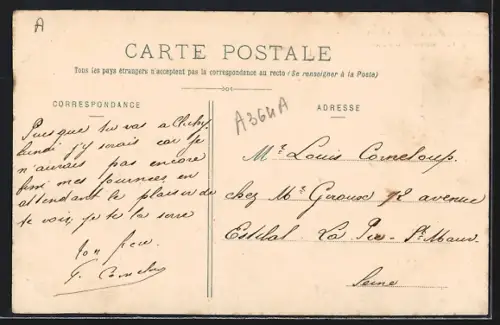 A
CARTE POSTALE
Tous les pays étrangers n'acceptent pas la correspondance au recto (Se renseigner à la Poste)
CORRESPONDANCE
ADRESSE
A364A
Puisque tu vas a Clichy
lundi j'y serais car je
n'aurais pas encore
fini mes tournées, en
attendant le plaisir de
te voir, je te la serre
ton frère
Mr Louis Corneloup.
chez Mr Giroux 12 avenue
La Pie - St Maur.
Seine